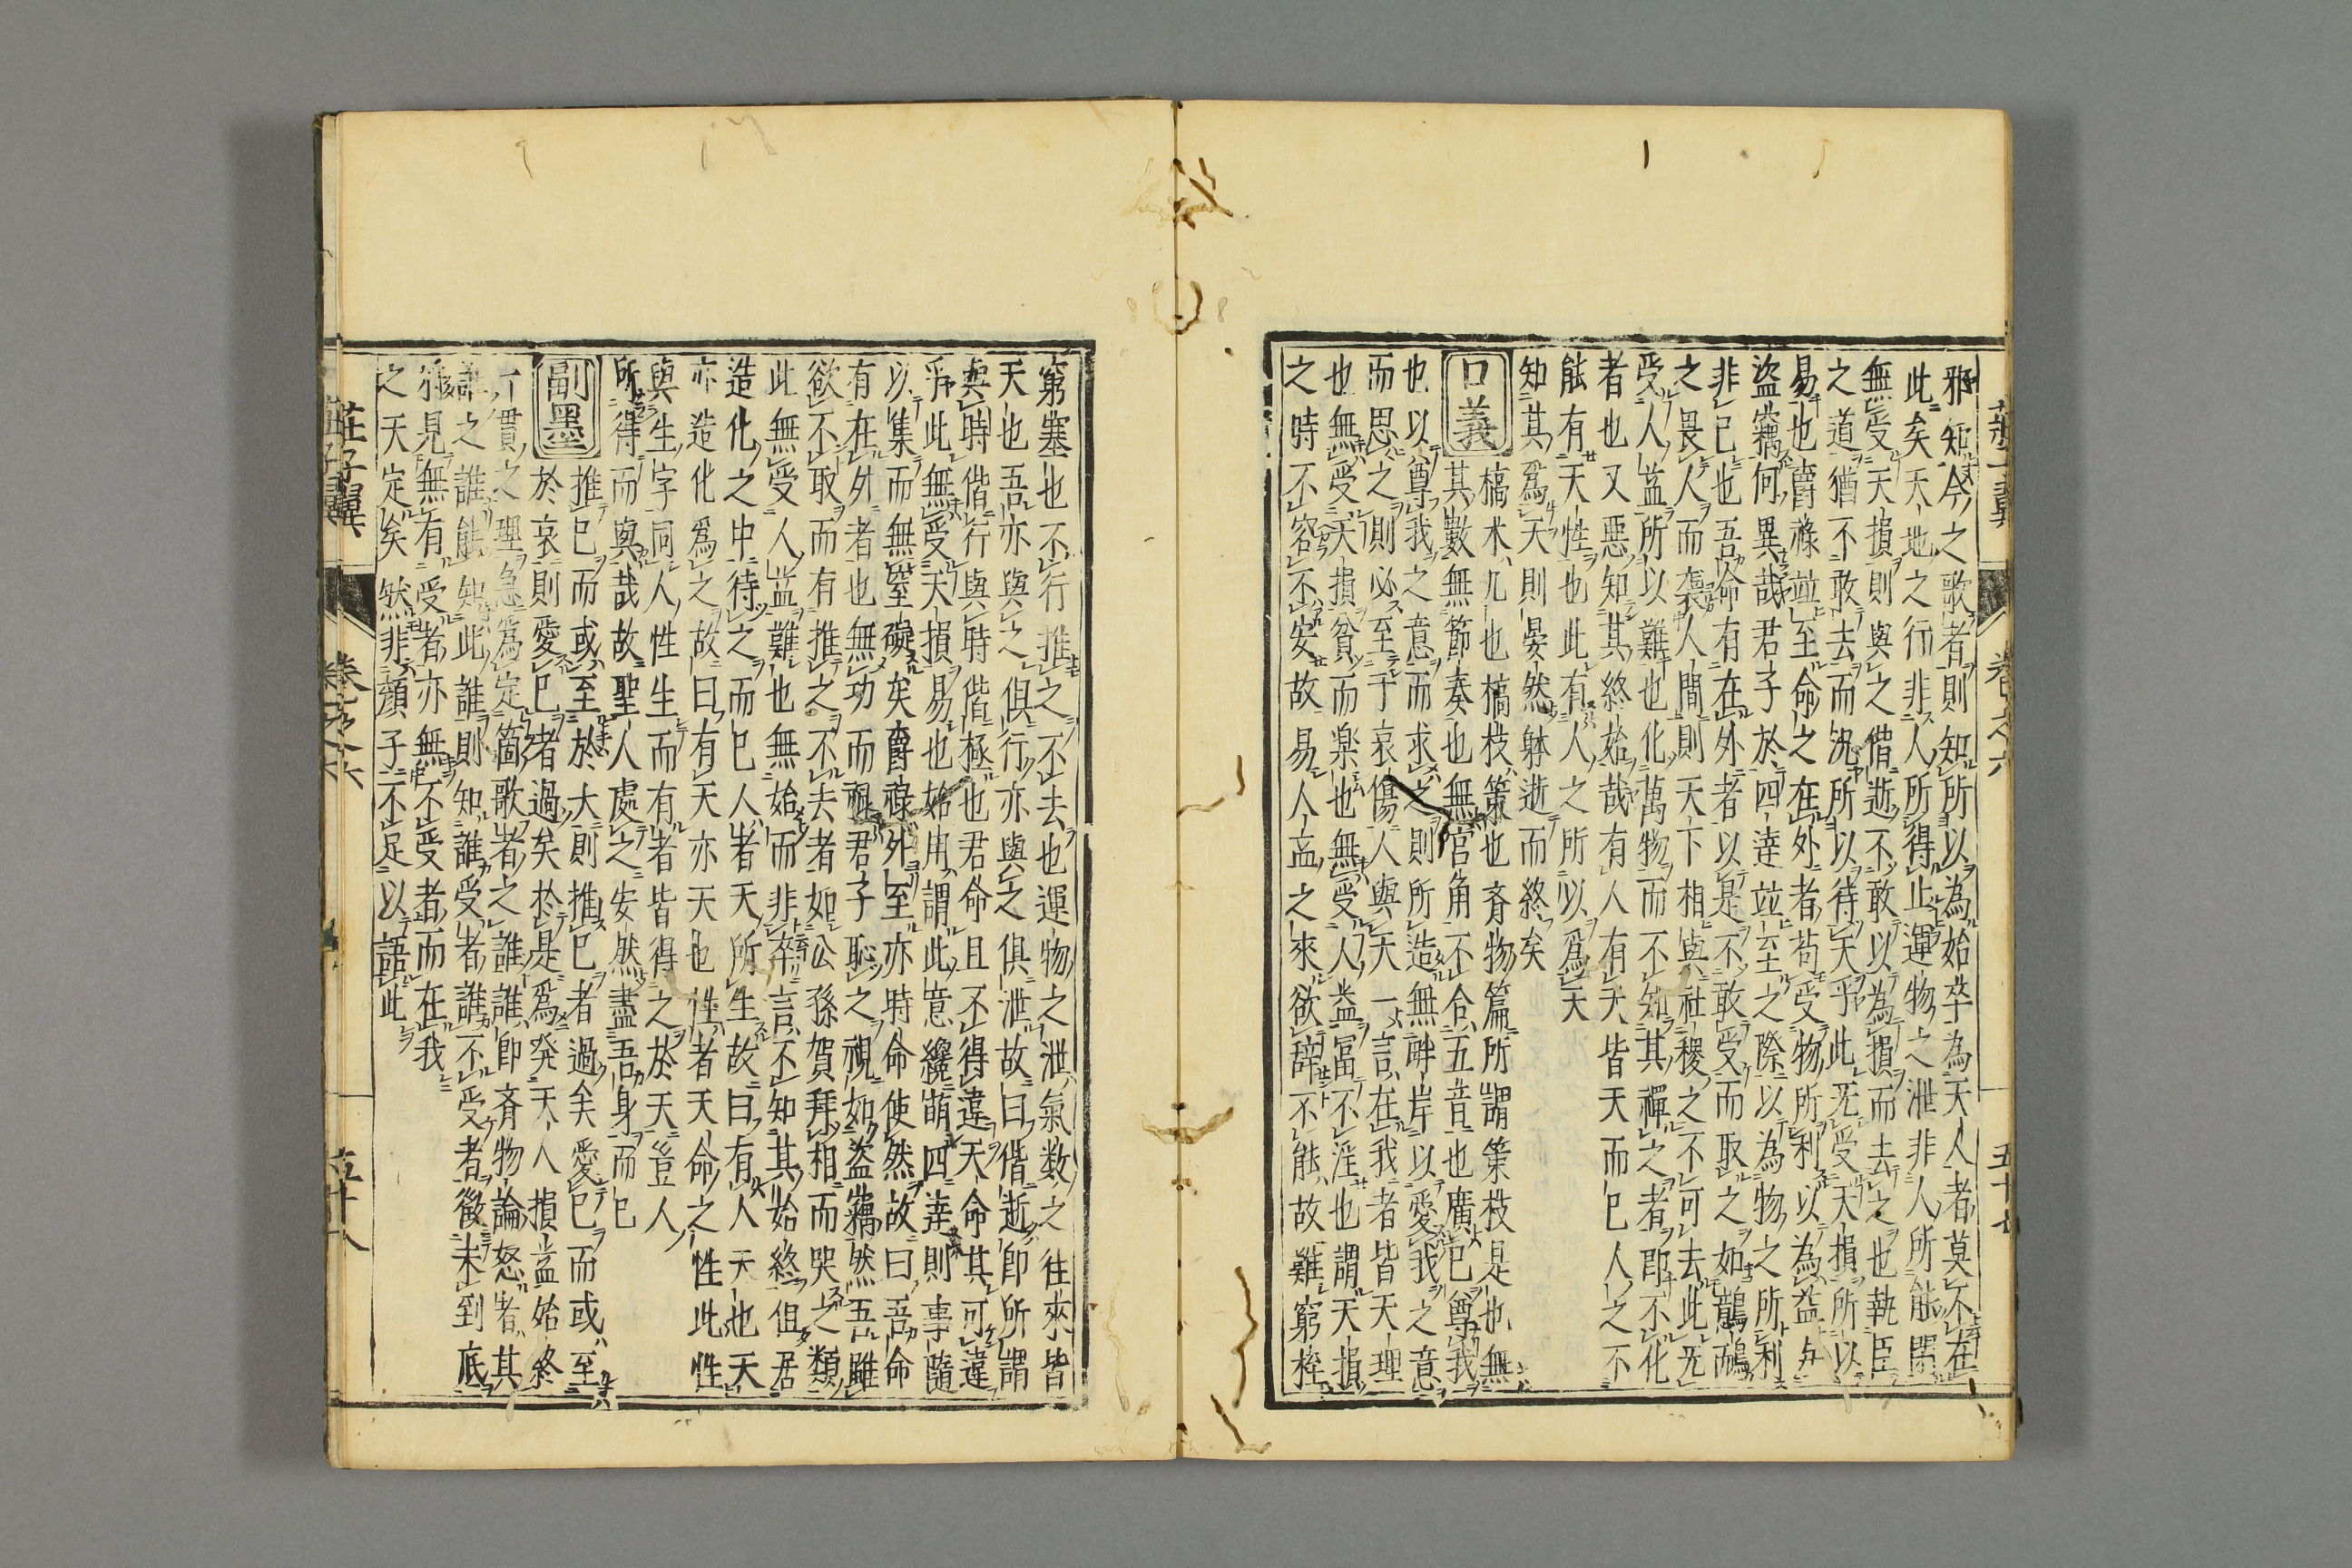 邪知今之歌者則知所以為始卒為天人者莫不在
此矣天地之行非人所得止運物之泄非人所能閉
無受天損則與之偕逝不敢以為損而去之也執臣
之道猶不敢去而況所以待天乎此无受天損所以
易也爵祿並至命之在外者苟受物所利以為益与
盜竊何異哉君子於四達並至之際以為物之所利
非己也吾命有在外者以是不敢受而取之如鷾鴯
之畏人而襲人間則天下相與社稷之不可去此无
受人益所以難也化萬物而不知其禪之者即不化
者也又惡知其終始哉有人有天皆天而已人之不
能有天性也此有人之所以爲天
知其爲天則晏然躰逝而終矣
口義 槁木几也槁枝策也斉物篇所謂策枝是也無
其數無節奏也無官角不合五音也廣己尊我
也以尊我之意而求之則所造無畔岸以愛我之意
而思之則必至于哀傷人與天一言在我者皆天理
也無受天損貧而楽也無受人益冨不淫也謂天損
之時不容不安故易人益之來欲辞不能故難窮桎
莊子翼 卷之六 五十七
窮塞也不行推之不去也運物之泄氣数之往來皆
天也吾亦與之俱行亦與之俱泄故曰偕逝即所謂
與時偕行與時偕極也君命且不得違天命其可違
乎此無受天損易也始用謂此意纔萌四達則事隨
以集而無窒礙矣爵祿外至亦時命使然故曰吾命
有在外者也無功而祿君子恥之視如盜竊然吾雖
欲不取而有推之不去者如公孫賀拜相而哭之類
此無受人益難也無始而非卒言不知其始終但居
造化之中待之而已人者天所生故曰有人天也天
亦造化爲之故曰有天亦天也性者天命之性此性
與生字同人性生而有者皆得之於天豈人
所得而與哉故聖人處之安然盡吾身而已
副墨 推已而或至於大則推已者過矣愛已而或至
於哀則愛已者過矣於是爲発天人損益始終
一貫之理急爲定箇歌者之誰誰即斉物論怒者其
誰之誰能知此誰則知誰受者誰不受者徵未到底
雅見無有受者亦無不受者而在我
之天定矣然非顔子不足以語此
莊子翼 卷之六 五十八